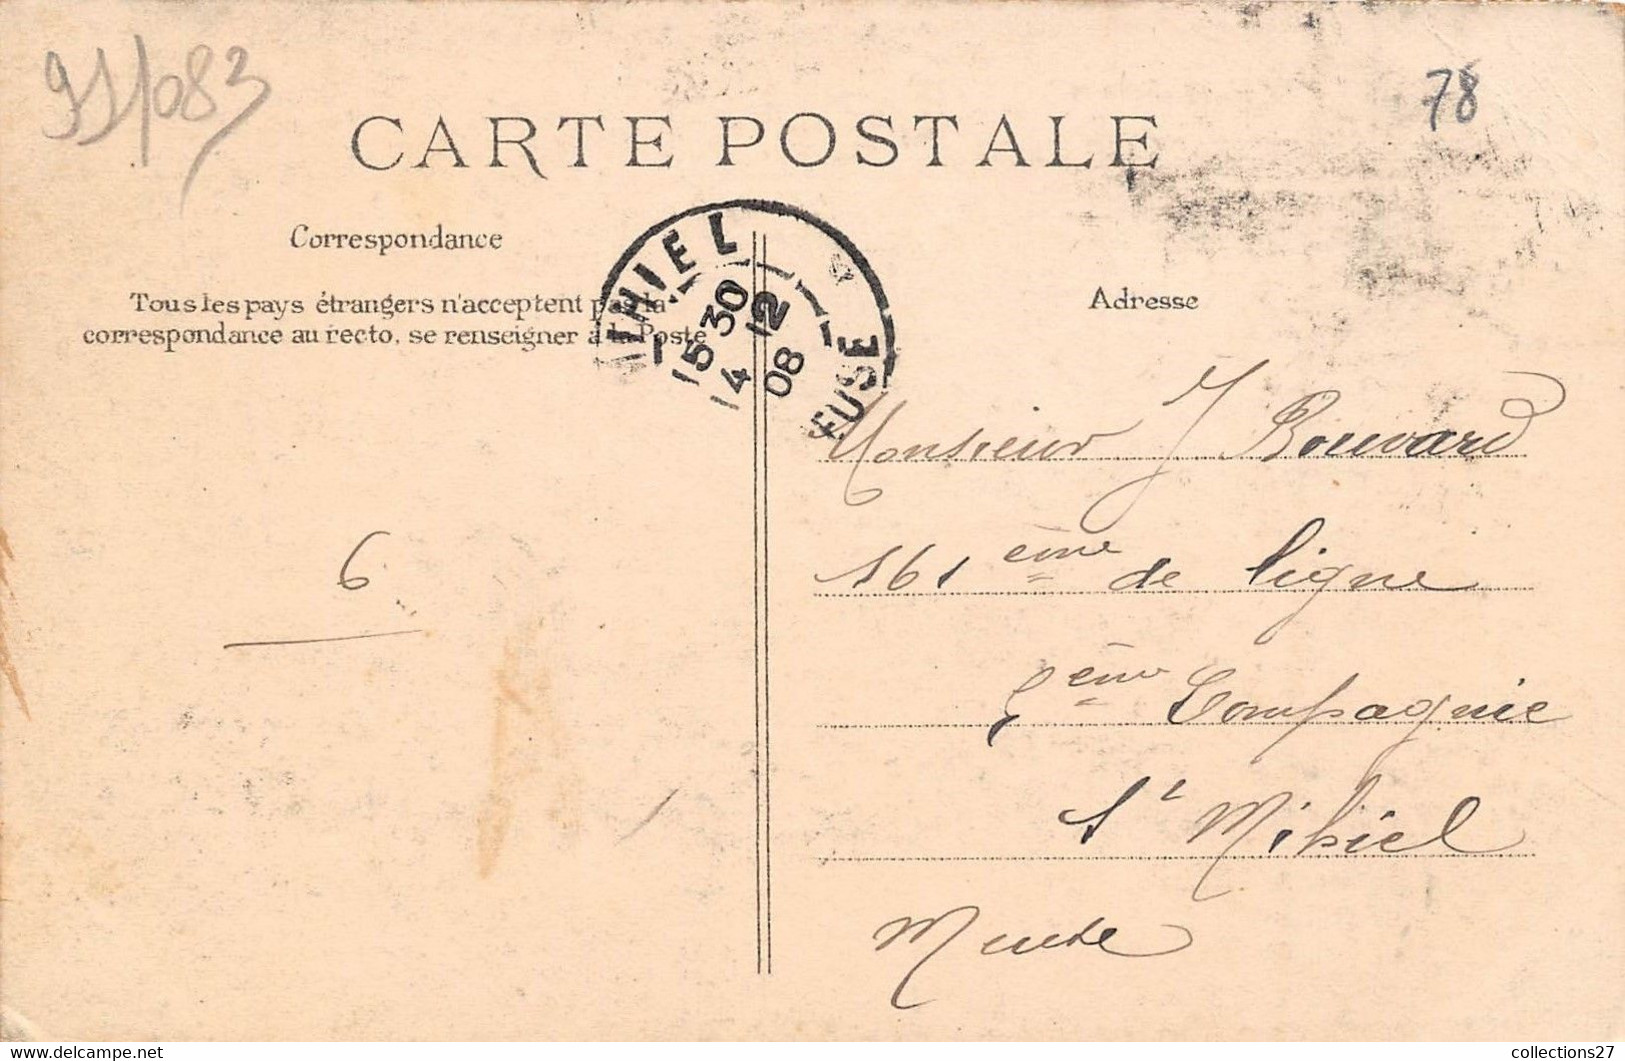 91/083
78
CARTE POSTALE
Correspondance
Tous les pays étrangers n'acceptent pas la
correspondance au recto, se renseigner à la Poste
Adresse
IHIEL
15 30
4 12
08
EUSE
Monsieur J Bouvard
161 ème de ligne
ème Compagnie
St Mihiel
Meuse
6
collections27